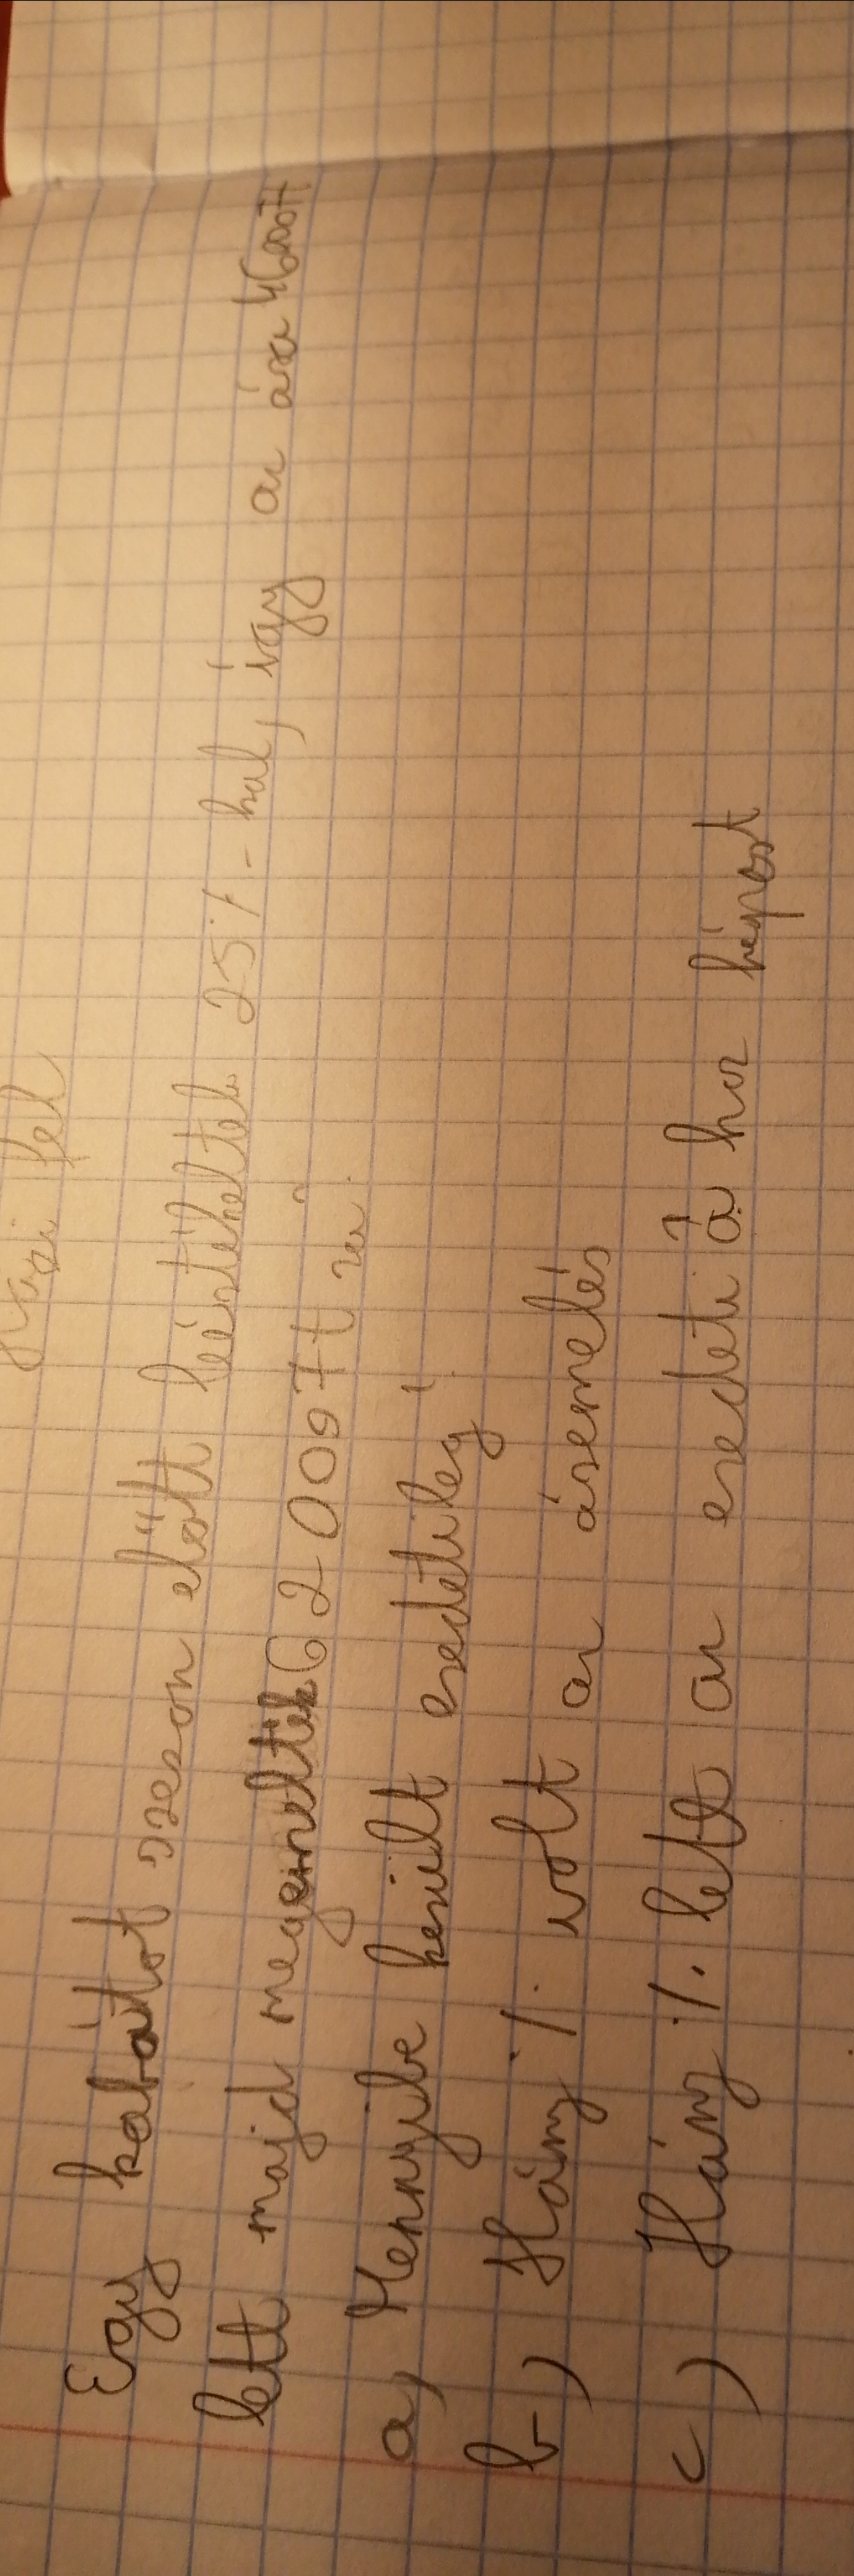 Házi fel
Egy kabátot szezon előtt leértékeltek 25%-kal, így az ára 46000Ft
lett majd megemelték 62000Ft ra.
a, Mennyibe került eredetileg
b) Hány % volt az áremelés
c) Hány % lett az eredeti á hoz képest